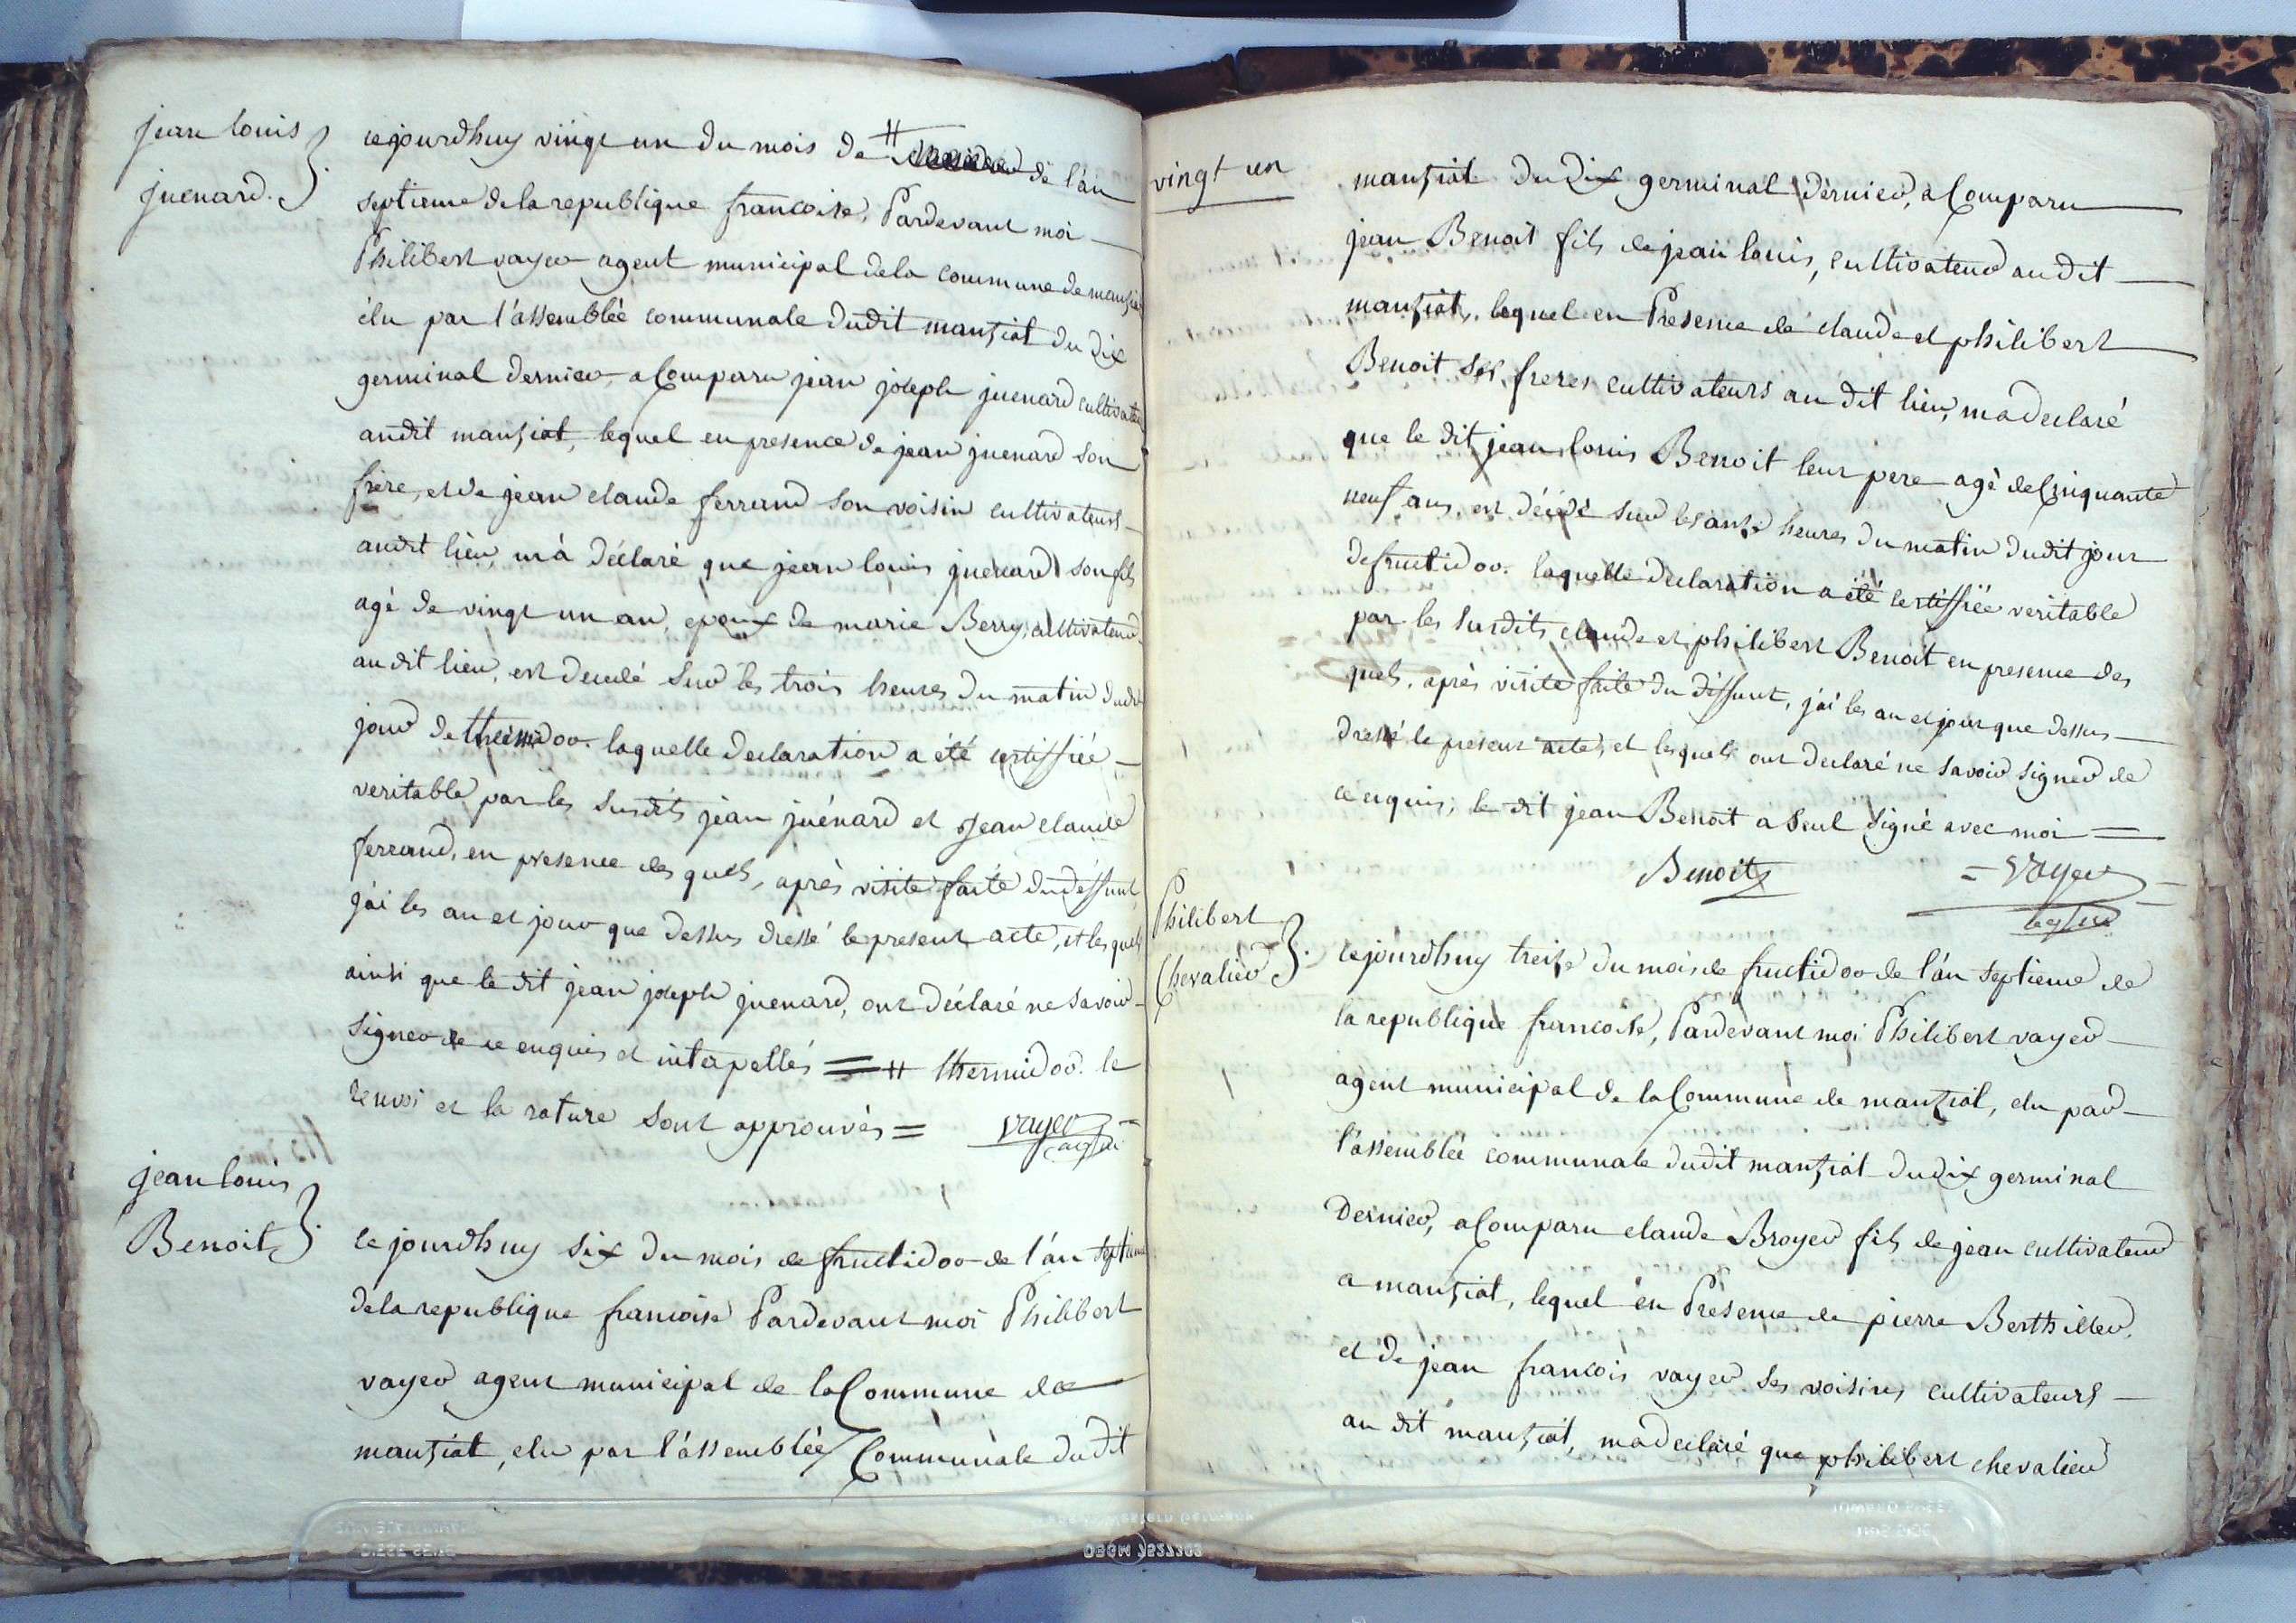 jean louis
juenard.
cejourdhuy vingt un du mois de # de l'an
septieme de la republique francoise, Pardevant moi
Philibert vayer agent municipal de la commune de manziat
élu par l'assemblée communale dudit manziat du dix
germinal dernier, a Comparu jean joseph juenard cultivateur
audit manziat, lequel en presence de jean juenard son
frère, et de jean claude ferrand son voisin cultivateurs
audit lieu, m'à déclaré que jean louis juenard son fils
agé de vingt un an, epoux de marie Berry, cultivateur
au dit lieu, est decedé sur les trois heures du matin dudit
jour de thermidor. laquelle declaration a été certiffiée
veritable par les susdits jean juénard et jean claude
ferrand, en presence des quels, après visite faite du deffunt
j'ai les an et jour que dessus dressé le present acte, et les quels
ainsi que le dit jean joseph juenard, ont déclaré ne savoir
signer de ce enquis et interpellés = # thermidor. le
renvoi et la rature sont approuvés = vayer
agent
jean louis
Benoit
cejourdhuy six du mois de fructidor de l'an septieme
de la republique francoise Pardevant moi Philibert
vayer agent municipal de la Commune de
manziat, elu par l'assemblée Communale dudit
vingt un
manziat du dix germinal dernier, a Comparu
jean Benoit fils de jean louis, cultivateur audit
manziat, lequel en Presence de claude et philibert
Benoit ses freres cultivateurs au dit lieu, m'a declaré
que le dit jean louis Benoit leur pere agé de Cinquante
neuf ans, est décédé sur les onze heures du matin dudit jour
de fructidor. laquelle declaration a été certiffiée veritable
par les susdits claude et philibert Benoit en presence des
quels, après visite faite du deffunt, j'ai les an et jour que dessus
dressé le present acte, et lesquels ont declaré ne savoir signer de
ce enquis; le dit jean Benoit a seul signé avec moi =
Benoit = vayer
agent
Philibert
Chevalier
cejourdhuy treize du mois de fructidor de l'an septieme de
la republique francoise, Pardevant moi Philibert vayer
agent municipal de la Commune de manziat, elu par
l'assemblée communale dudit manziat du dix germinal
dernier, a Comparu claude Broyer fils de jean cultivateur
a manziat, lequel en Presence de pierre Berthillier,
et de jean francois vayer ses voisins cultivateurs
au dit manziat, m'a declaré que philibert chevalier